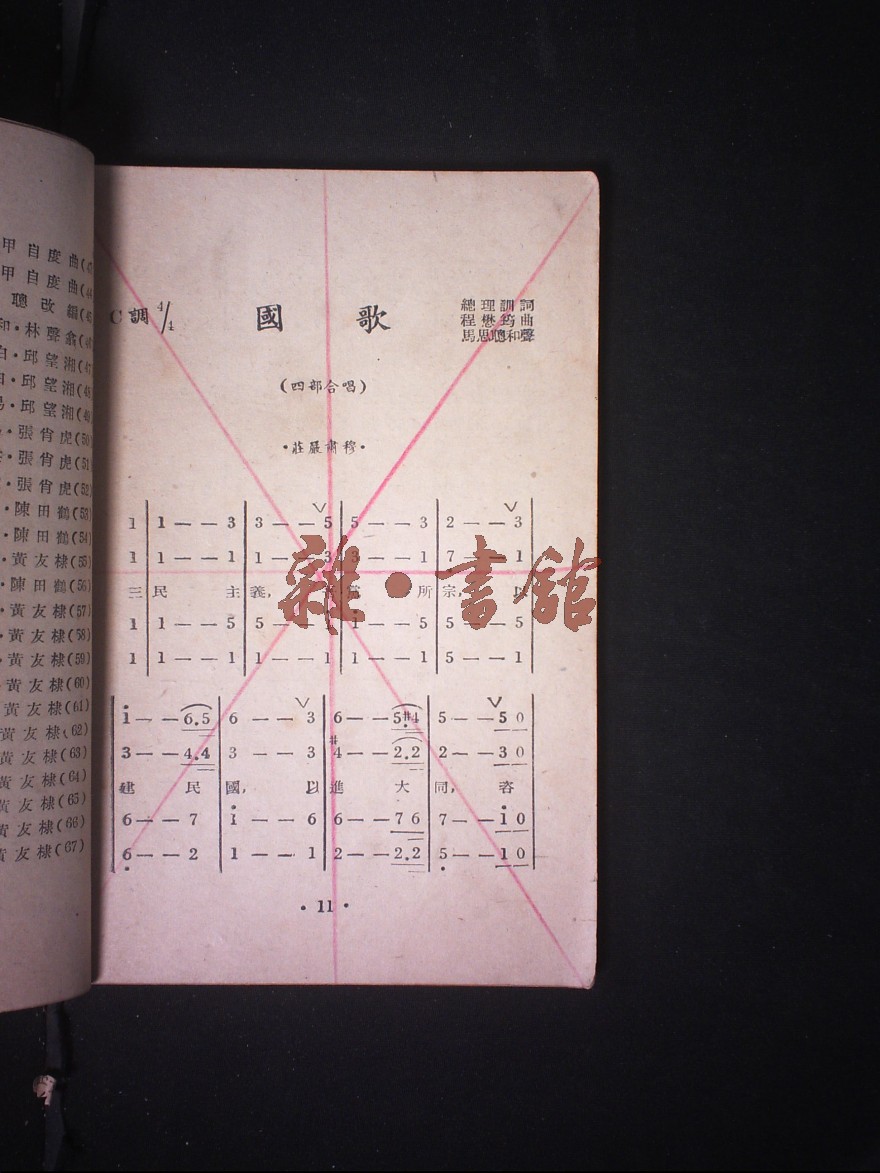 甲自度曲(43
甲自度曲(44
聰改編(45
和·林聲翕(46
白·邱望湘(47
·邱望湘(48
易·邱望湘(49
·張肖虎(50)
·張肖虎(51
·張肖虎(52)
·陳田鶴(53)
·陳田鶴(54)
·黃友棣(55)
·陳田鶴(56)
·黃友棣(57)
·黃友棣(58)
·黃友棣(59)
·黃友棣(60)
黃友棣(61)
黃友棣(62)
黃友棣(63)
黃友棣(64)
黃友棣(65)
黃友棣(66)
黃友棣(67)
C調 4/4
國歌
總理訓詞
程懋筠曲
馬思聰和聲
(四部合唱)
·莊嚴肅穆·
1 | 1 — — 3 | 3 — — 5 | 5 — — 3 | 2 — — 3 |
1 | 1 — — 1 | 1 — — 3 | 3 — — 1 | 7 — — 1 |
三 民 主 義, 所 宗, 以
1 | 1 — — 5 | 5 — — 1 | 1 — — 5 | 5 — — 5 |
1 | 1 — — 1 | 1 — — 1 | 1 — — 1 | 5 — — 1 |
雜·書館
| 1 — — 6.5 | 6 — — 3 | 6 — — 5#4 | 5 — — 5 0 |
| 3 — — 4.4 | 3 — — 3 | #4 — — 2.2 | 2 — — 3 0 |
建 民 國, 以 進 大 同, 咨
| 6 — — 7 | 1 — — 6 | 6 — — 7 6 | 7 — — 1 0 |
| 6 — — 2 | 1 — — 1 | 2 — — 2.2 | 5 — — 1 0 |
·11·